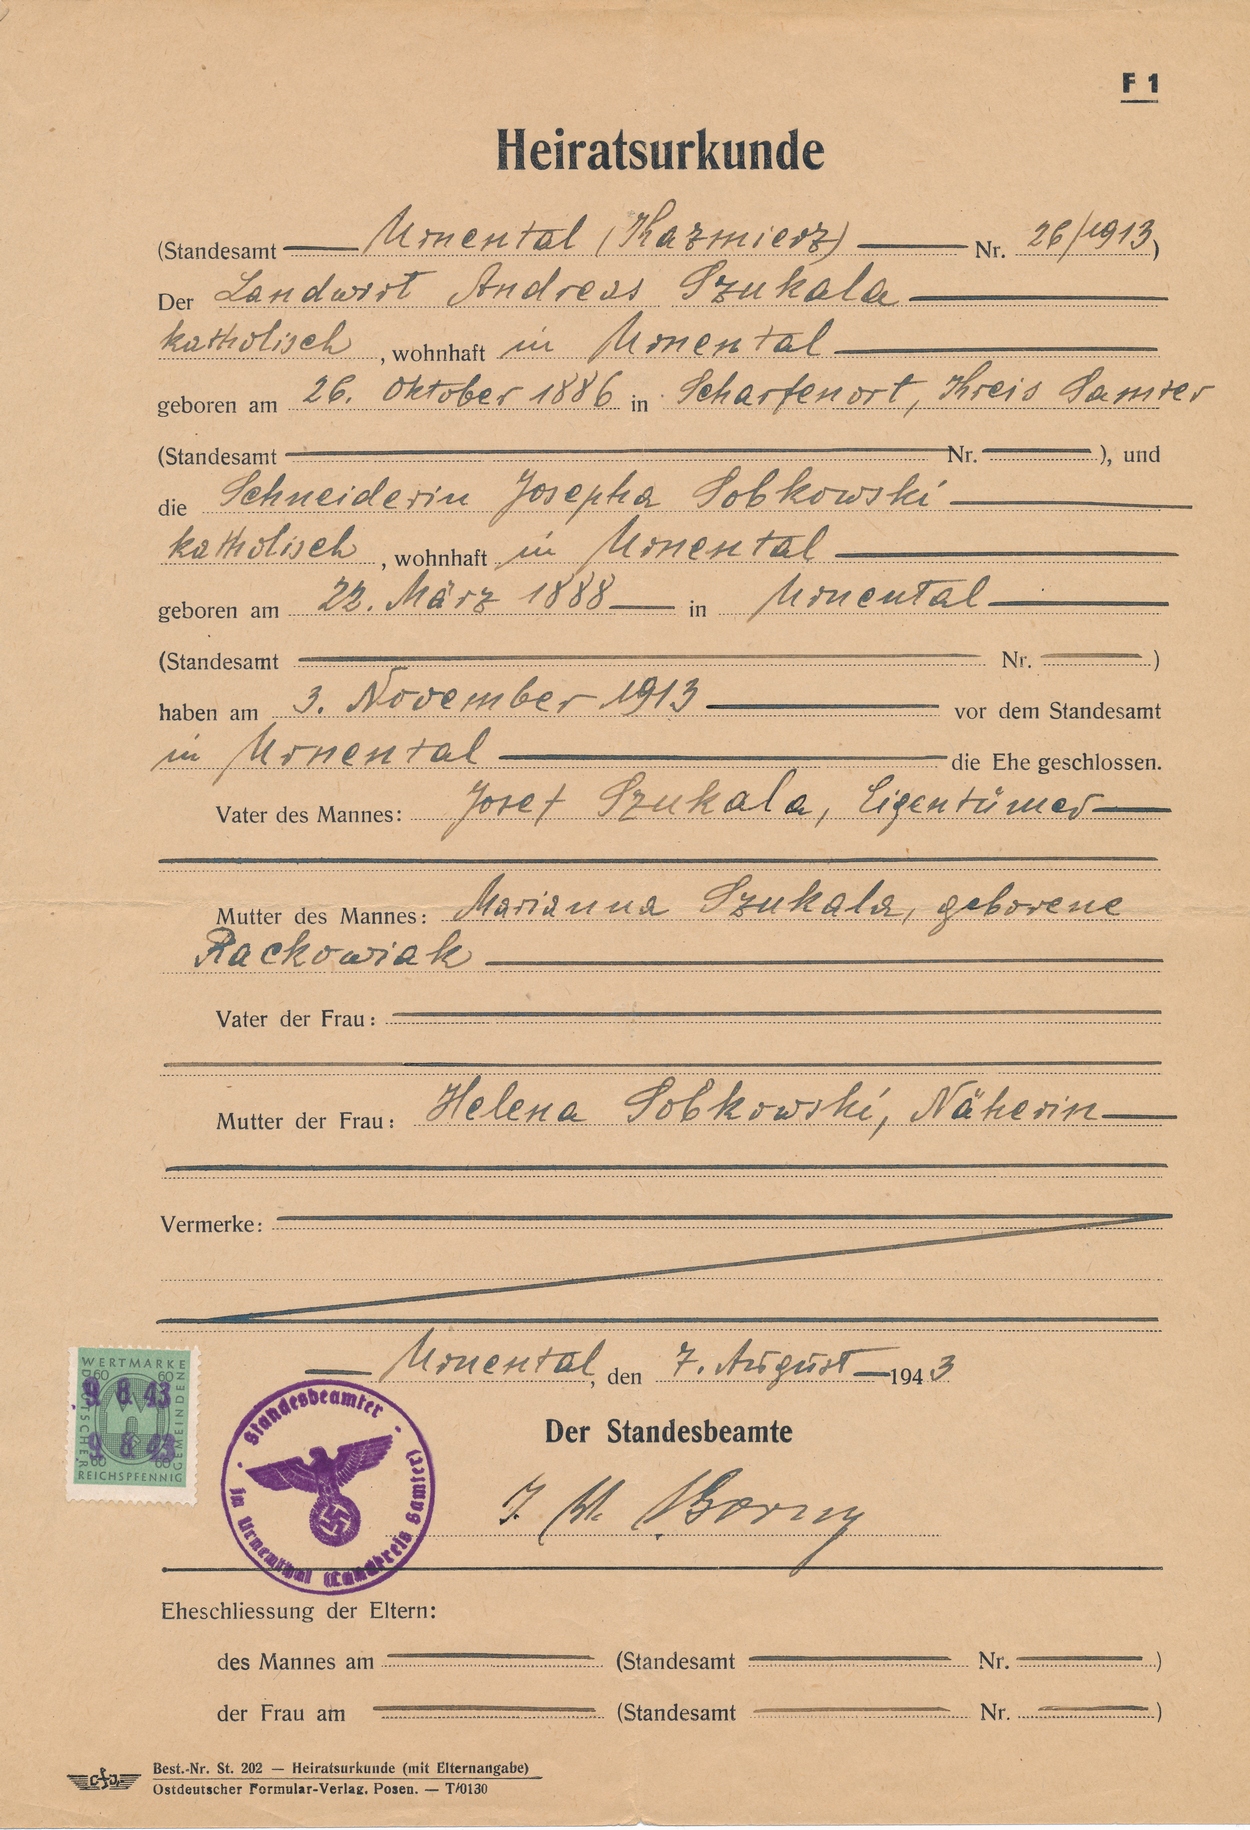 F 1
Heiratsurkunde
(Standesamt Urnental (Kazmierz) Nr. 26/1913)
Der Landwirt Andreas Szukala
katholisch, wohnhaft in Urnental
geboren am 26. Oktober 1886 in Scharfenort, Kreis Samter
(Standesamt Nr. ), und
die Schneiderin Josepha Sobkowski
katholisch, wohnhaft in Urnental
geboren am 22. März 1888 in Urnental
(Standesamt Nr. )
haben am 3. November 1913 vor dem Standesamt
in Urnental die Ehe geschlossen.
Vater des Mannes: Josef Szukala, Eigentümer
Mutter des Mannes: Marianna Szukala, geborene
Rackowiak
Vater der Frau:
Mutter der Frau: Helena Sobkowski, Näherin
Vermerke:
Urnental, den 7. August 1943
WERTMARKE
DEUTSCHER GEMEINDEN
60 60
9. 8. 43
9. 8. 43
60 60
REICHSPFENNIG
Standesbeamter
in Urnenthal (Landkreis Samter)
Der Standesbeamte
J. V. Borny
Eheschliessung der Eltern:
des Mannes am (Standesamt Nr. )
der Frau am (Standesamt Nr. )
Best.-Nr. St. 202 — Heiratsurkunde (mit Elternangabe)
Ostdeutscher Formular-Verlag, Posen. — T/0130